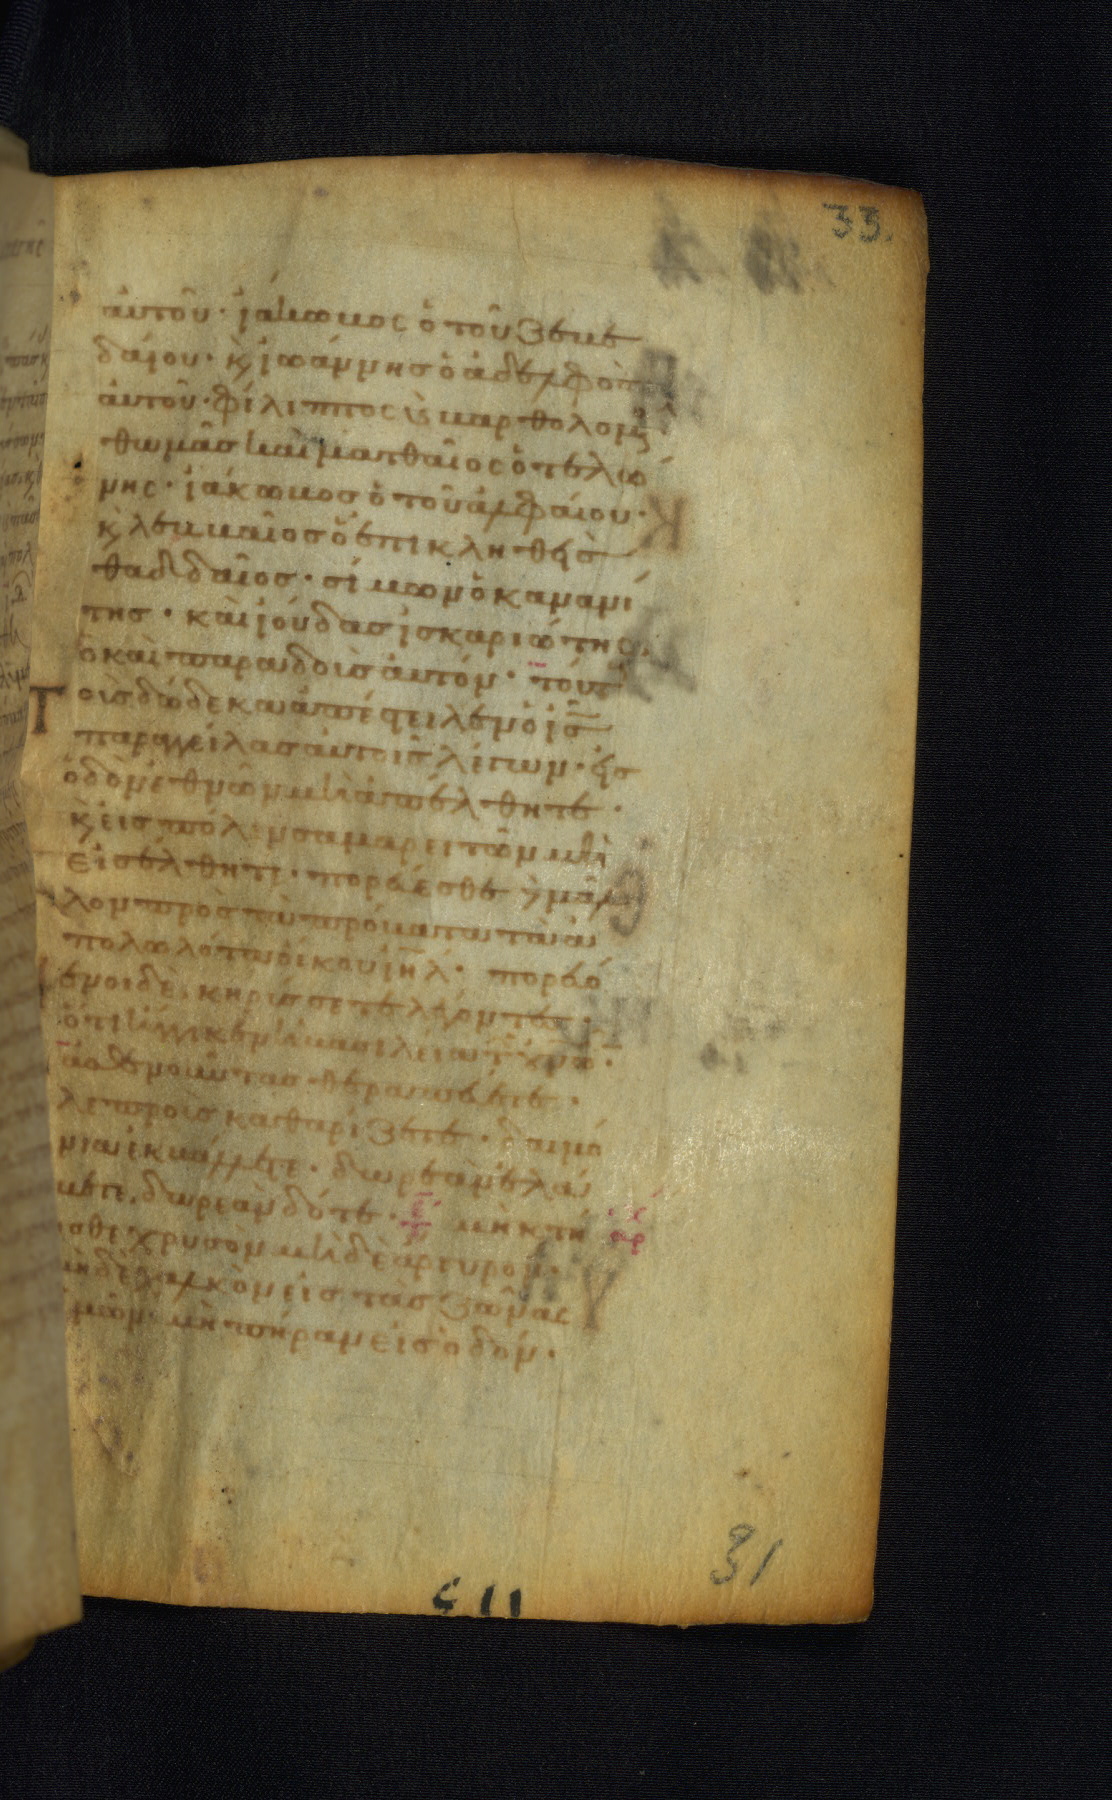 33.
ἀυτοῦ· ἰάκωβος ὁ τοῦ Ζεβε
δαίου· κ ἰωάννησ ὁ ἀδελφὸσ
ἀυτοῦ· φίλιππος κ βαρθολομ
θωμᾶσ καὶ ματθαῖος ὁ τελώ
νης· ἰάκωβοσ ὁ τοῦ ἀλφαίου·
κ λεββαῖοσ ὁ ἐπικληθεὶσ
θαδδαῖοσ· σίμων ὁ καμανί
τησ· καὶ ἰούδασ ἰσκαριώτης,
ὁ καὶ παραδοὺσ ἀυτόν· τούτ
Τ οὺσ δώδεκα ἀπέστειλεν ὁ ις
παραγγείλασ ἀυτοῖσ λέγων· εἰσ
ὁδὸν ἐθνῶν μὴ ἀπέλθητε·
κ εἰσ πόλιν σαμαρειτῶν μὴ
εἰσέλθητι· πορεύεσθε δὲ μᾶλ
λον πρὸσ τὰ πρόβατα τὰ ἀ
πολωλότα ὀίκου ιηλ· πορευό
μενοι δὲ, κηρύσσετε λέγοντες·
ὅτι ἤγγικεν ἡ βασιλεία τ
ἀσθενοῦντασ θεραπεύετε·
λεπροὺσ καθαρίζετε· δαιμό
νια ἐκβάλλετε· δωρεὰν ἐλά
βετε, δωρεὰν δότε· μὴ κτή
σθε χρυσὸν μηδὲ ἄργυρον·
μηδὲ χαλκὸν εἰσ τὰσ ζώνας
ὑμῶν· μὴ πήραν εἰσ ὁδόν·
31